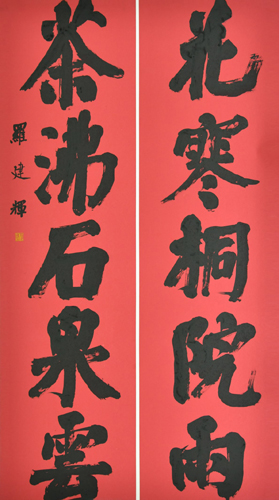 花寒桐院雨
茶沸石泉雲
羅建輝